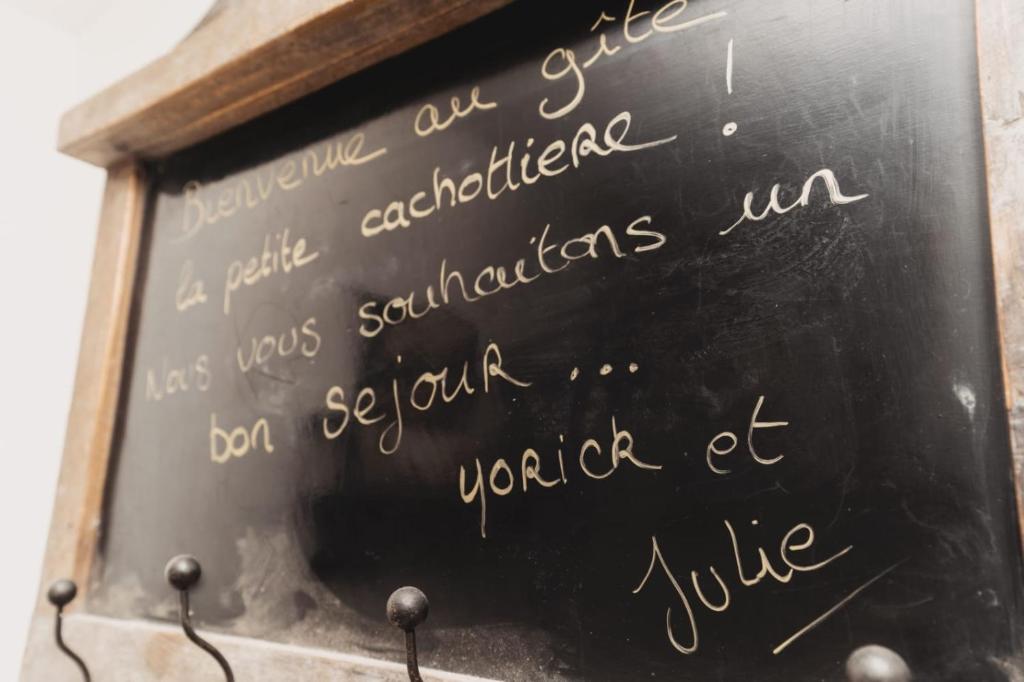 Bienvenue au gîte
la petite cachottiere !
Nous vous souhaitons un
bon sejour ...
yorick et
Julie